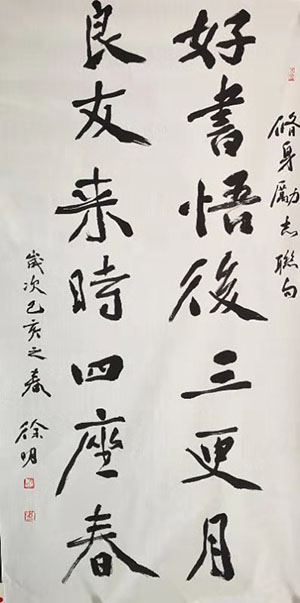 脩身勵志聯句
好書悟後三更月
良友来時四座春
歲次己亥之春 徐明